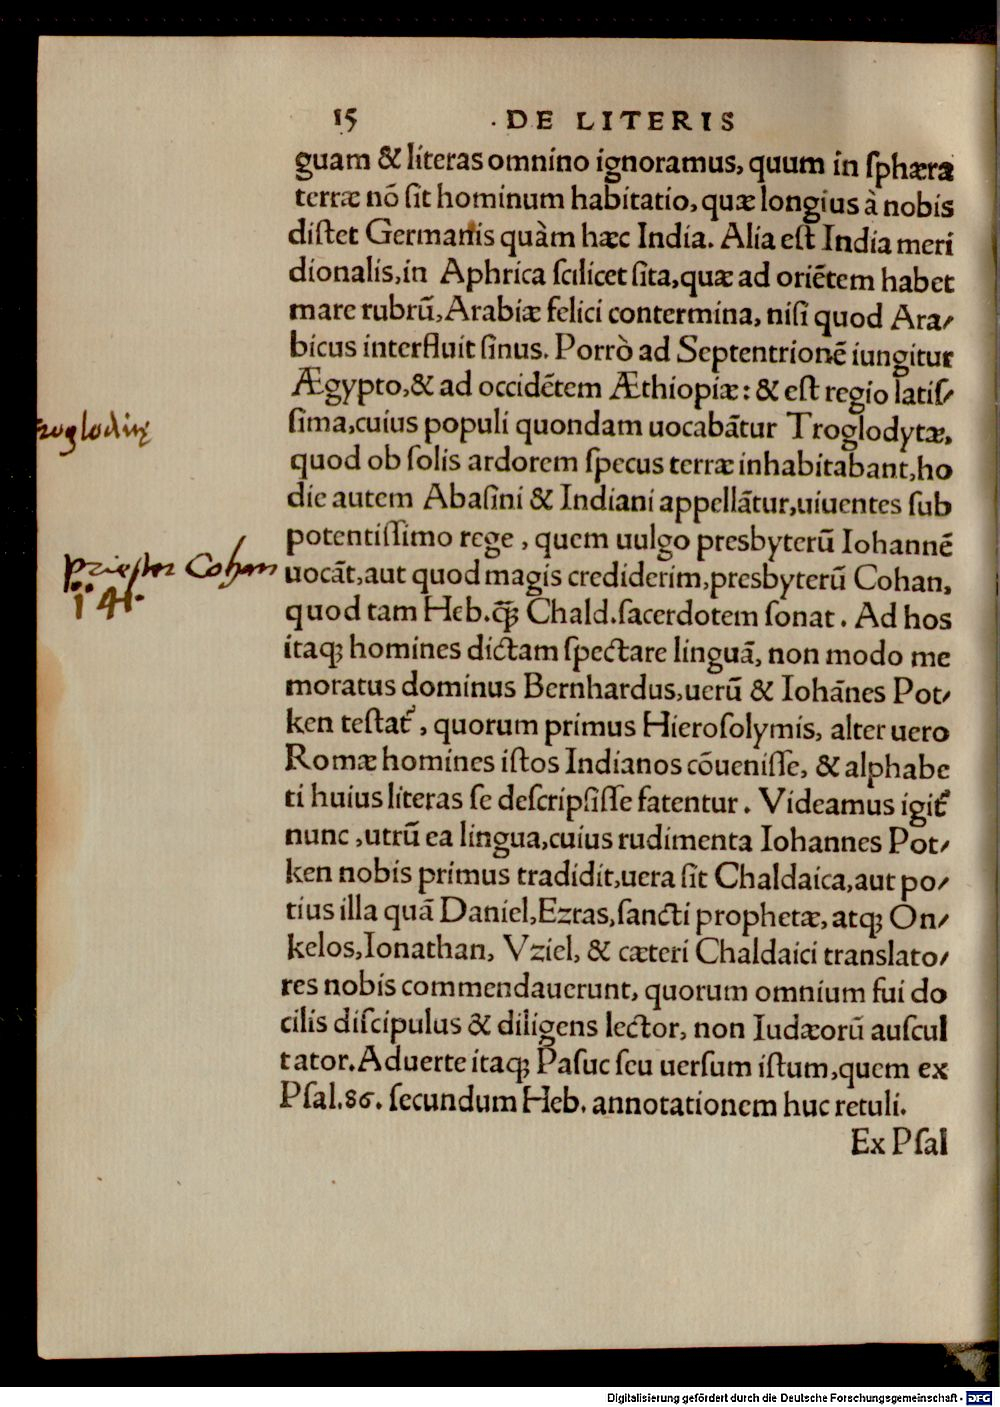 15 DE LITERIS
guam & literas omnino ignoramus, quum in ſphæra
terræ nō ſit hominum habitatio, quæ longius à nobis
diſtet Germanis quàm hæc India. Alia eſt India meri
dionalis, in Aphrica ſcilicet ſita, quæ ad oriētem habet
mare rubrū, Arabiæ felici contermina, niſi quod Ara⸗
bicus interfluit ſinus. Porrò ad Septentrionē iungitur
Ægypto, & ad occidētem Æthiopiæ: & eſt regio latiſ⸗
ſima, cuius populi quondam uocabātur Troglodytæ,
quod ob ſolis ardorem ſpecus terræ inhabitabant, ho
die autem Abaſini & Indiani appellātur, uiuentes ſub
potentiſſimo rege, quem uulgo presbyterū Iohannē
uocāt, aut quod magis crediderim, presbyterū Cohan,
quod tam Heb. q̃ꝫ Chald. ſacerdotem ſonat. Ad hos
itaqꝫ homines dictam ſpectare linguā, non modo me
moratus dominus Bernhardus, uerū & Iohānes Pot⸗
ken teſtat᷑, quorum primus Hieroſolymis, alter uero
Romæ homines iſtos Indianos cōueniſſe, & alphabe
ti huius literas ſe deſcripſiſſe fatentur. Videamus igit᷑
nunc, utrū ea lingua, cuius rudimenta Iohannes Pot⸗
ken nobis primus tradidit, uera ſit Chaldaica, aut po⸗
tius illa quā Daniel, Ezras, ſancti prophetæ, atqꝫ On⸗
kelos, Ionathan, Vziel, & cæteri Chaldaici translato⸗
res nobis commendauerunt, quorum omnium fui do
cilis diſcipulus & diligens lector, non Iudæorū auſcul
tator. Aduerte itaqꝫ Paſuc ſeu uerſum iſtum, quem ex
Pſal. 86. ſecundum Heb. annotationem huc retuli.
Ex Pſal
priester Cohan
Digitalisierung gefördert durch die Deutsche Forschungsgemeinschaft - DFG